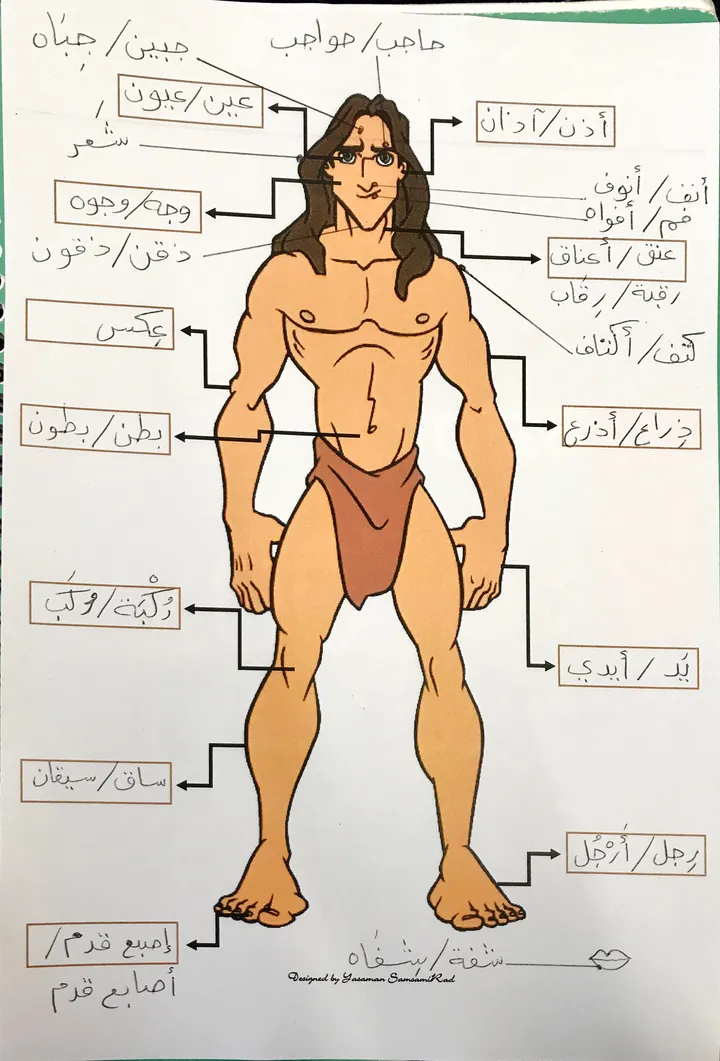 حاجب/حواجب
جبين/جباه
عين/عيون
أذن/آذان
شعر
أنف/أنوف
وجه/وجوه
فم/أفواه
ذقن/ذقون
عنق/أعناق
رقبة/رقاب
عكس
كتف/أكتاف
بطن/بطون
ذراع/أذرع
رُكْبَة/رُكَب
يَد/أيدي
ساق/سيقان
رِجل/أَرْجُل
إصبع قدم/
أصابع قدم
شفة/شِفَاه
Designed by Yasaman SamsamiRad